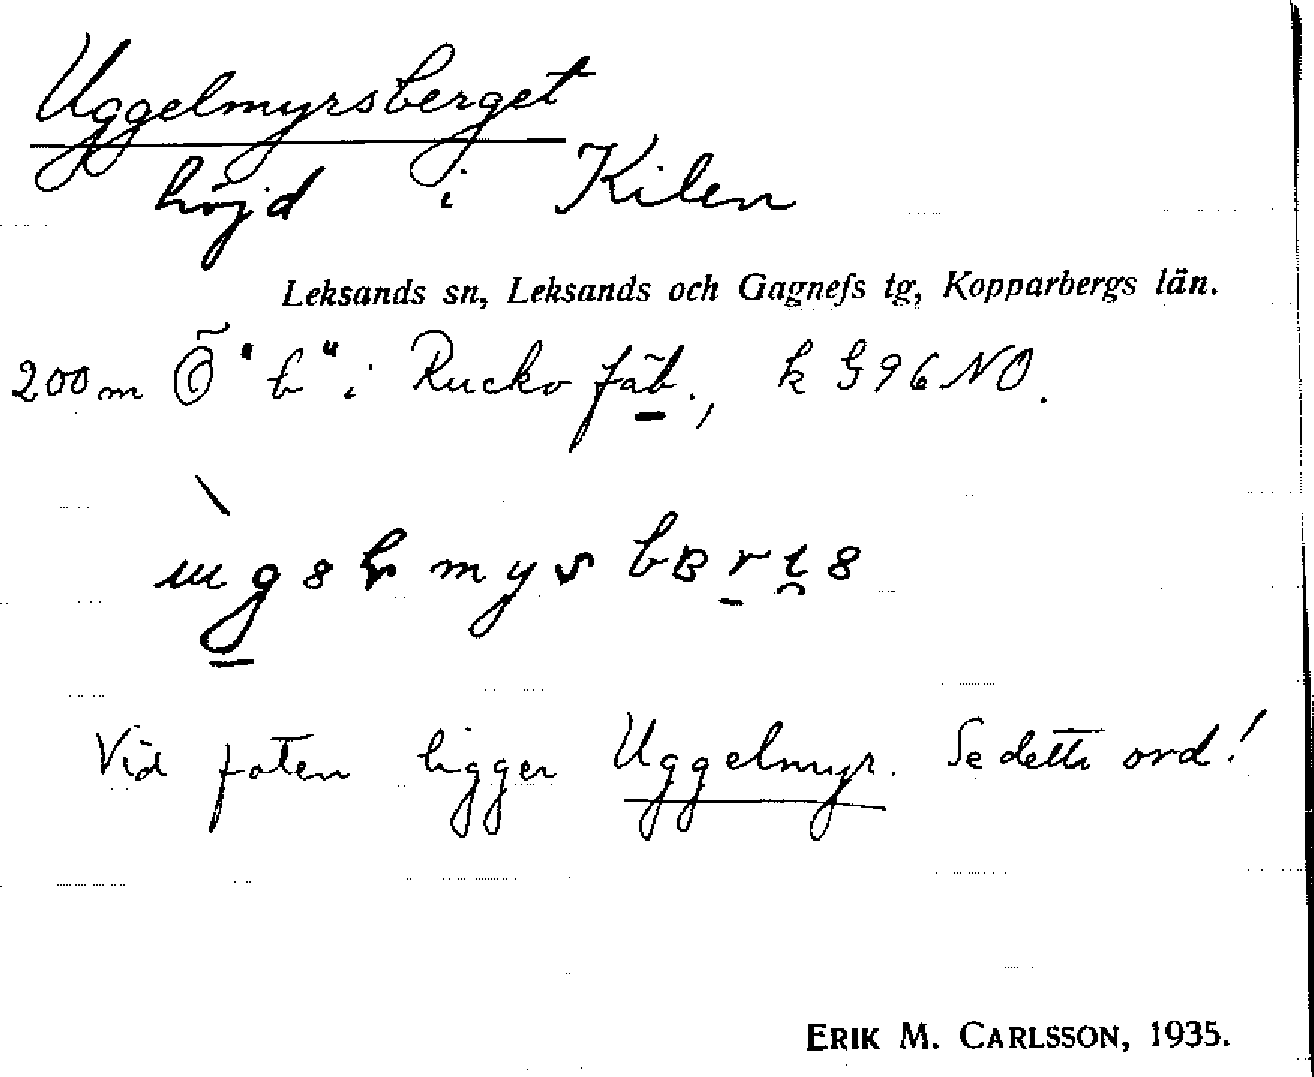 Uggelmyrsberget
höjd i Kilen
Leksands sn, Leksands och Gagnefs tg, Kopparbergs län.
200 m Ö "b" i Rucko fäb., k G 96 NO.
Vid foten ligger Uggelmyr. Se detta ord!
ERIK M. CARLSSON, 1935.